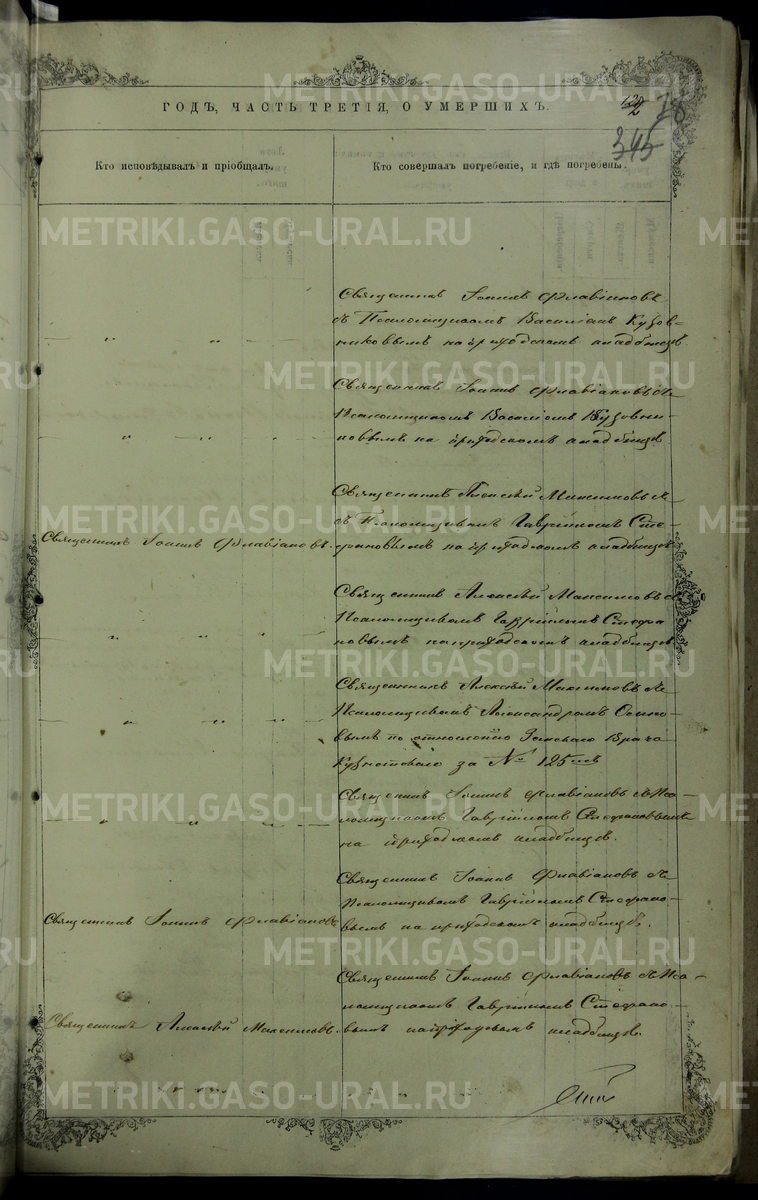 ГОДЪ, ЧАСТЬ ТРЕТІЯ, О УМЕРШИХЪ.
345
Кто исповѣдывалъ и пріобщалъ.
Кто совершалъ погребеніе, и гдѣ погребены.
Священникъ Іоаннъ Флавіановъ
съ Псаломщикомъ Василіемъ Кузов-
никовымъ на приходскомъ кладбищѣ
Священникъ Іоаннъ Флавіановъ съ
Псаломщикомъ Василіемъ Кузовни-
ковымъ на приходскомъ кладбищѣ
Священникъ Алексѣй Максимовъ
съ Псаломщикомъ Гавріиломъ Сте-
Священникъ Іоаннъ Флавіановъ.
фановымъ на приходскомъ кладбищѣ
Священникъ Алексѣй Максимовъ съ
Псаломщикомъ Гавріиломъ Стефа
новымъ на приходскомъ кладбищѣ
Священникъ Алексѣй Максимовъ съ
Псаломщикомъ Александромъ
вымъ по отношенію Земскаго Врача
за № 125
Священникъ Іоаннъ Флавіановъ съ Пса-
ломщикомъ Гавріиломъ Стефановымъ
на приходскомъ кладбищѣ.
Священникъ Іоаннъ Флавіановъ съ
Псаломщикомъ Гавріиломъ Стефано-
Священникъ Іоаннъ Флавіановъ
вымъ на приходскомъ кладбищѣ.
Священникъ Іоаннъ Флавіановъ съ Пса-
ломщикомъ Гавріиломъ Стефано-
Священникъ Алексѣй Максимовъ.
вымъ на приходскомъ кладбищѣ.
METRIKI.GASO-URAL.RU